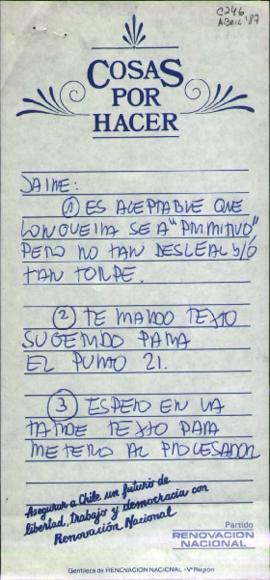 C246
ABRIL '87
COSAS
POR
HACER
JAIME:
① ES ACEPTABLE QUE
LONGUEIRA SEA "PRIMITIVO",
PERO NO TAN DESLEAL Y/O
TAN TORPE.
② TE MANDO TEXTO
SUGERIDO PARA
EL PUNTO 21.
③ ESPERO EN LA
TARDE TEXTO PARA
METERLO AL PROCESADOR
Asegurar a Chile un futuro de
libertad, trabajo y democracia con
Renovación Nacional
Partido
RENOVACION
NACIONAL
Gentileza de RENOVACION NACIONAL - Vª Región